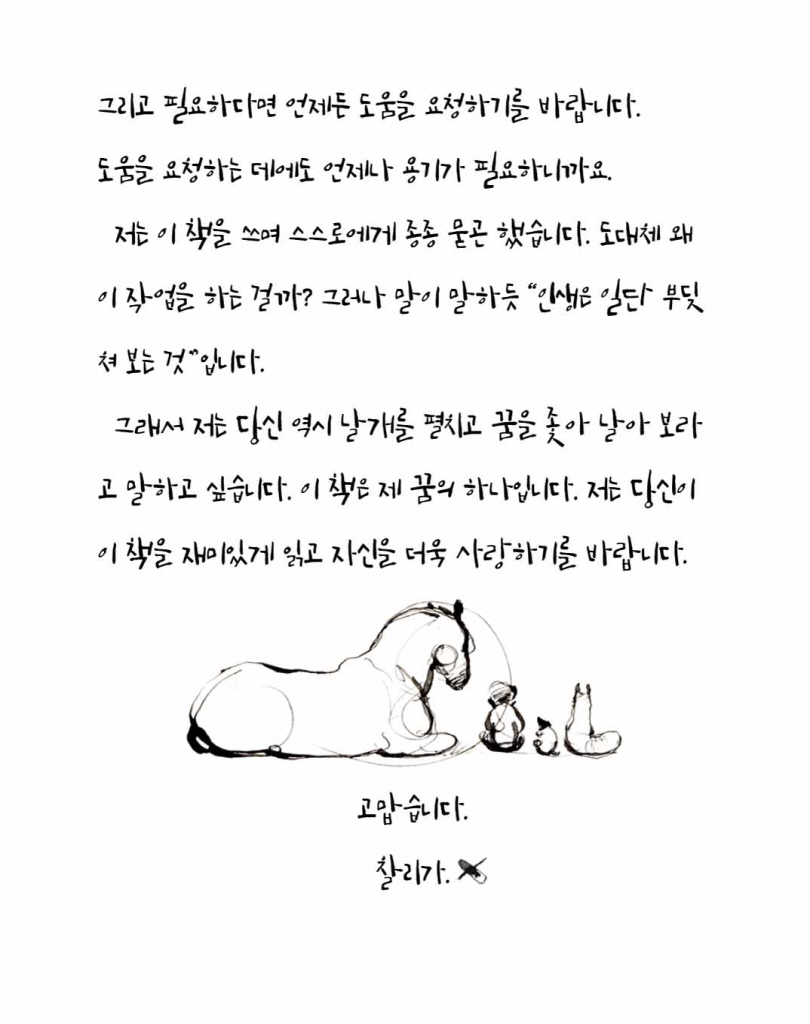 그리고 필요하다면 언제든 도움을 요청하기를 바랍니다.
도움을 요청하는 데에도 언제나 용기가 필요하니까요.
저는 이 책을 쓰며 스스로에게 종종 묻곤 했습니다. 도대체 왜
이 작업을 하는 걸까? 그러나 말이 말하듯 “인생은 일단 부딪
쳐 보는 것”입니다.
그래서 저는 당신 역시 날개를 펼치고 꿈을 좇아 날아 보라
고 말하고 싶습니다. 이 책은 제 꿈의 하나입니다. 저는 당신이
이 책을 재미있게 읽고 자신을 더욱 사랑하기를 바랍니다.
고맙습니다.
찰리가.